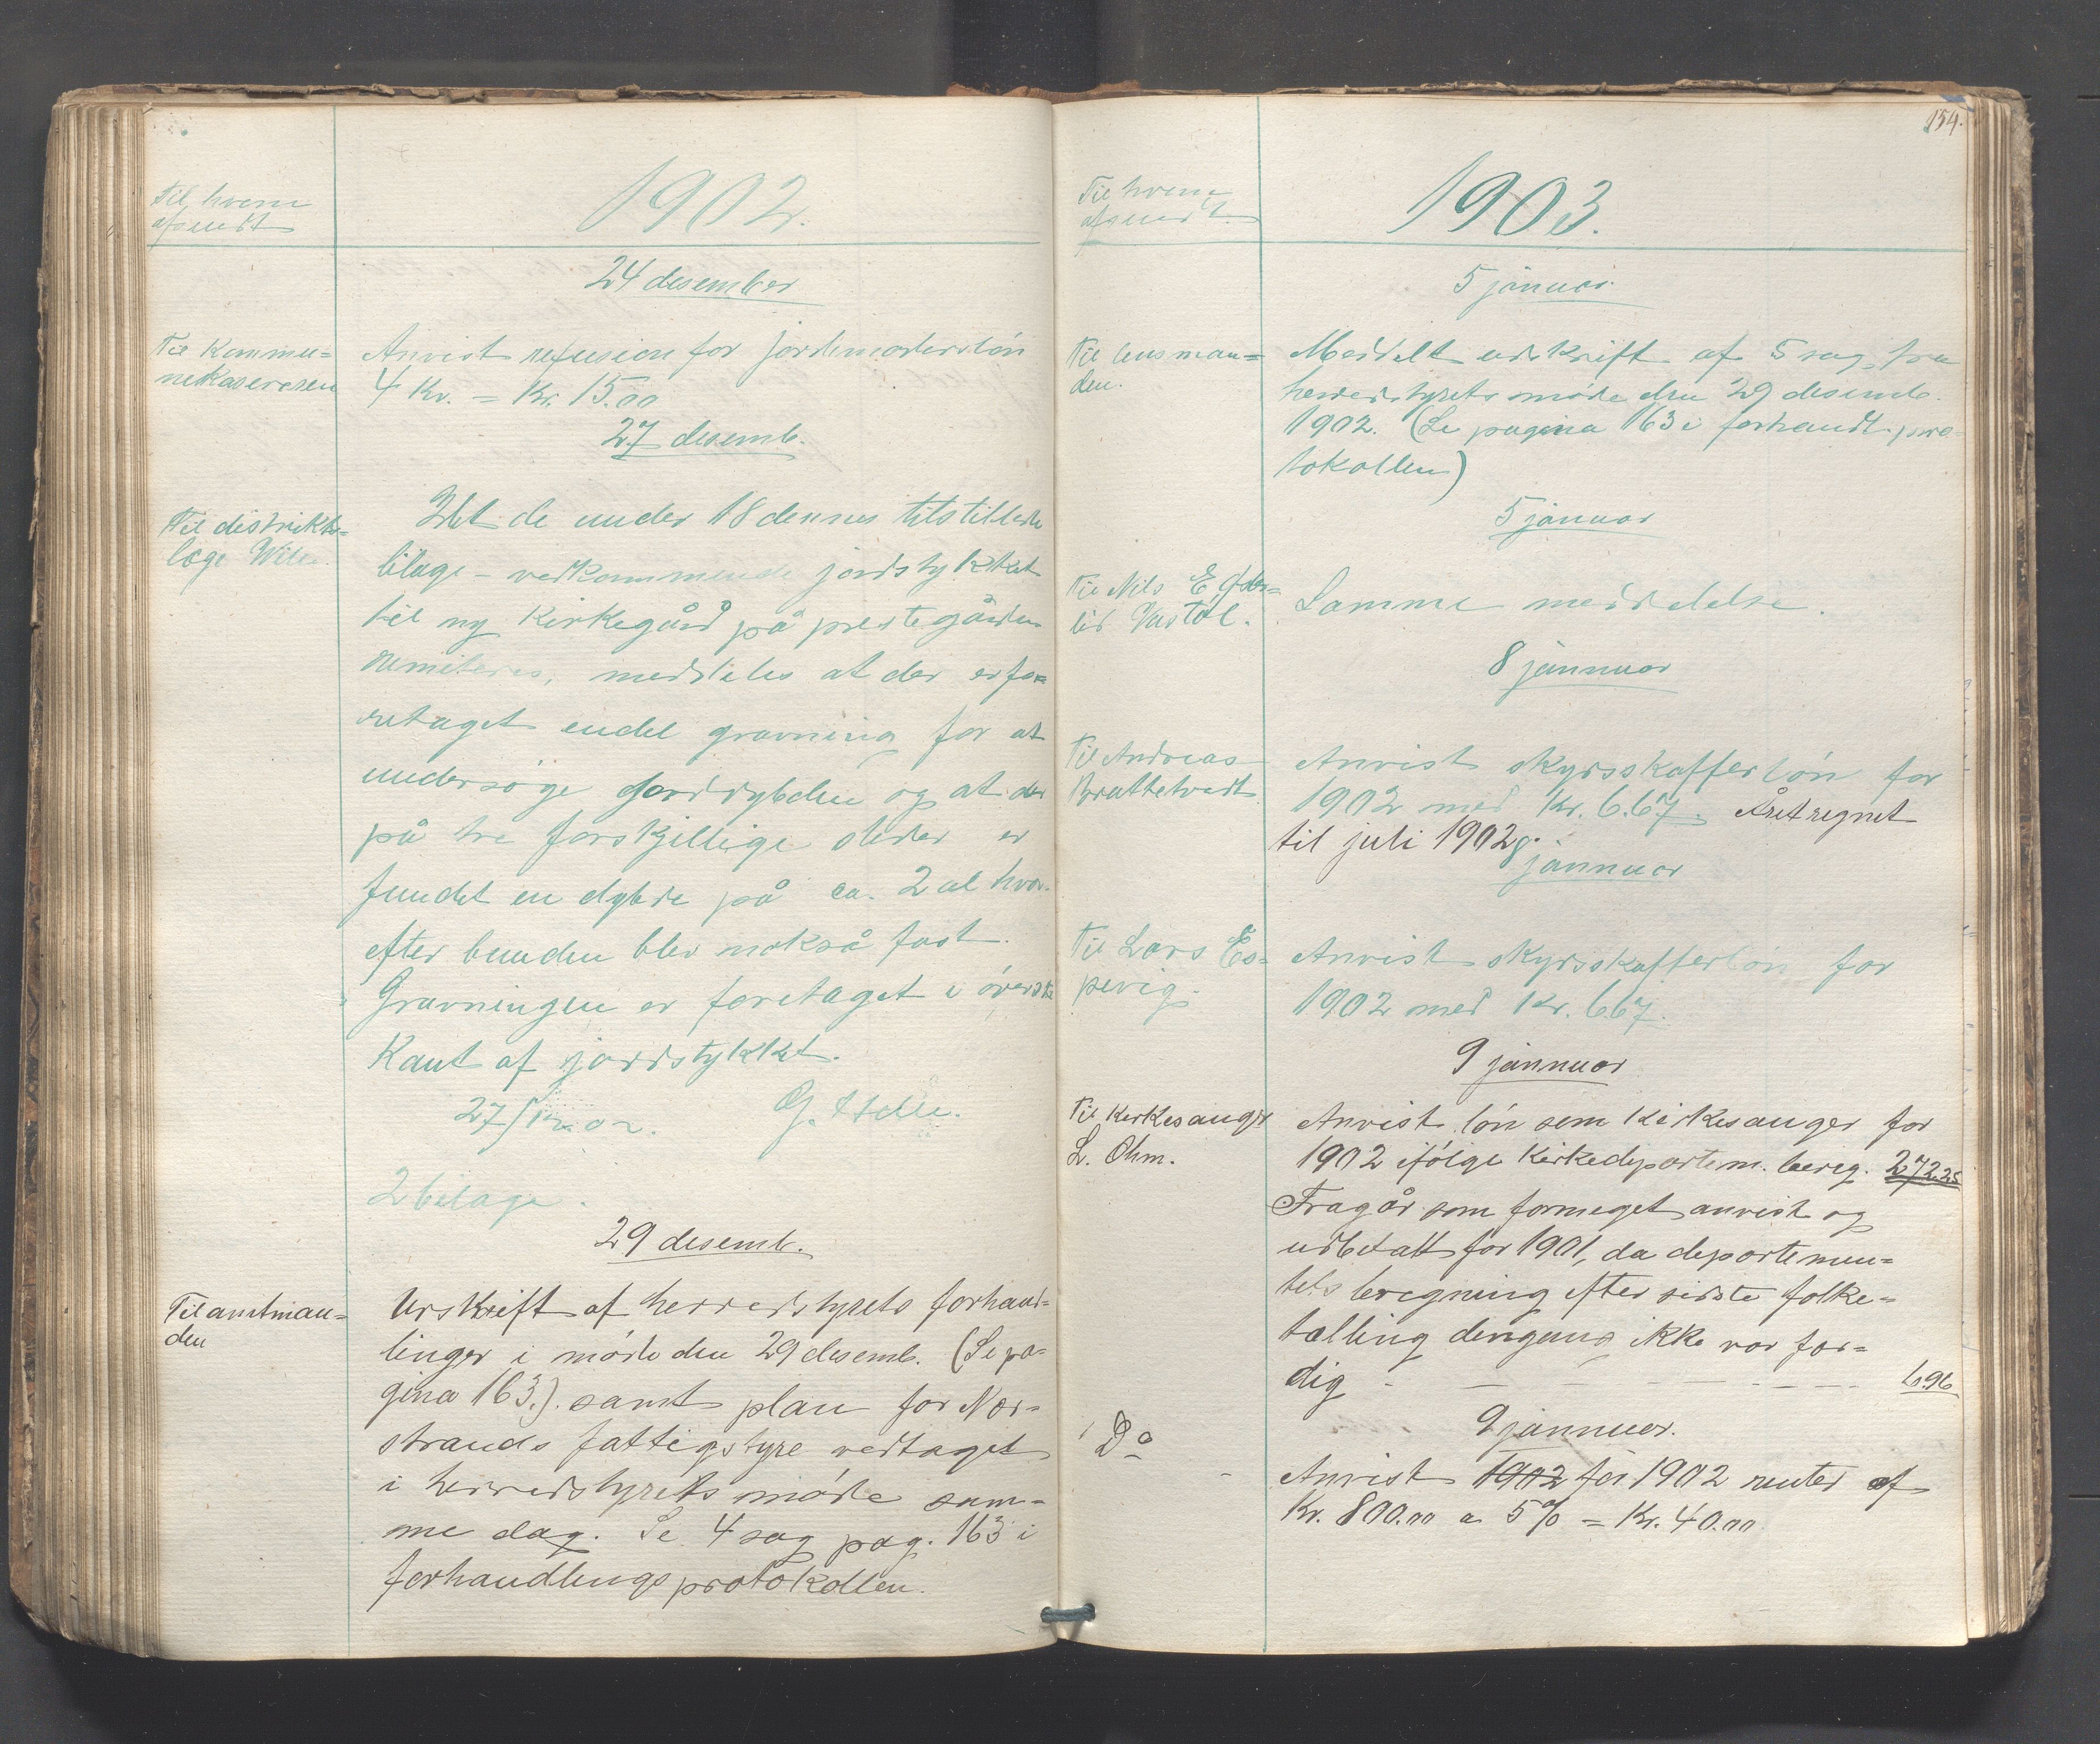 Til hvem
afsendt
1902.
24 desember
Til Kommu=
nekasereren
Anvist refusion for jordemoderløn
4 Kv. = Kr. 15.00
27 desemb.
Til distrikts=
læge
Idet de under 18 dennes tilstillede
bilage - vedkommende jordstykket
til ny Kirkegård på prestegården
remiteres, meddeles at der er fo=
retaget endel gravning for at
undersøge jorddybden og at der
på tre forskjellige steder er
fundet en dybde på ca. 2 al hvor-
efter bunden blev nokså fast.
Gravningen er foretaget i øverste
Kant af jordstykket.
27/12 02.
G.
2 bilage.
29 desemb.
Til amtman=
den
Urskrift af herredstyrets forhand=
linger i møde den 29 desemb. (Se pa=
gina 163.). samt plan for Nær=
strands fattigstyre vedtaget
i herredstyrets møde sam=
me dag. Se 4 sag pag. 163 i
forhandlingsprotokollen.
154.
Til hvem
afsendt.
1903.
5 januar
Til lensman=
den.
Meddelt udskrift af 5 sag fra
herredstyrets møde den 29 desemb.
1902. (Se pagina 163 i forhandl. pro-
tokollen)
5 januar
Til Nils
Samme meddelelse.
8 jannuar
Til Andreas
Brattetveit
Anvist skydsskafferløn for
1902 med Kr. 6.67. Året regnet
til juli 1902.
8 jannuar
Til Lars Es=
pevig.
Anvist skydsskafferløn for
1902 med Kr. 6.67.
9 jannuar
Til Kirkesanger
L. Ohm.
Anvist løn som Kirkesanger for
1902 ifølge Kirkedepartem. bereg. 272.25
Fragår som formeget anvist og
udbetalt for 1901, da departemen=
tets beregning efter sidste folke=
tælling dengang ikke var fær=
dig - — — — — 6.96
9 jannuar.
Do
Anvist 1902 for 1902 renter af
Kr. 800.00 a 5% = Kr. 40.00